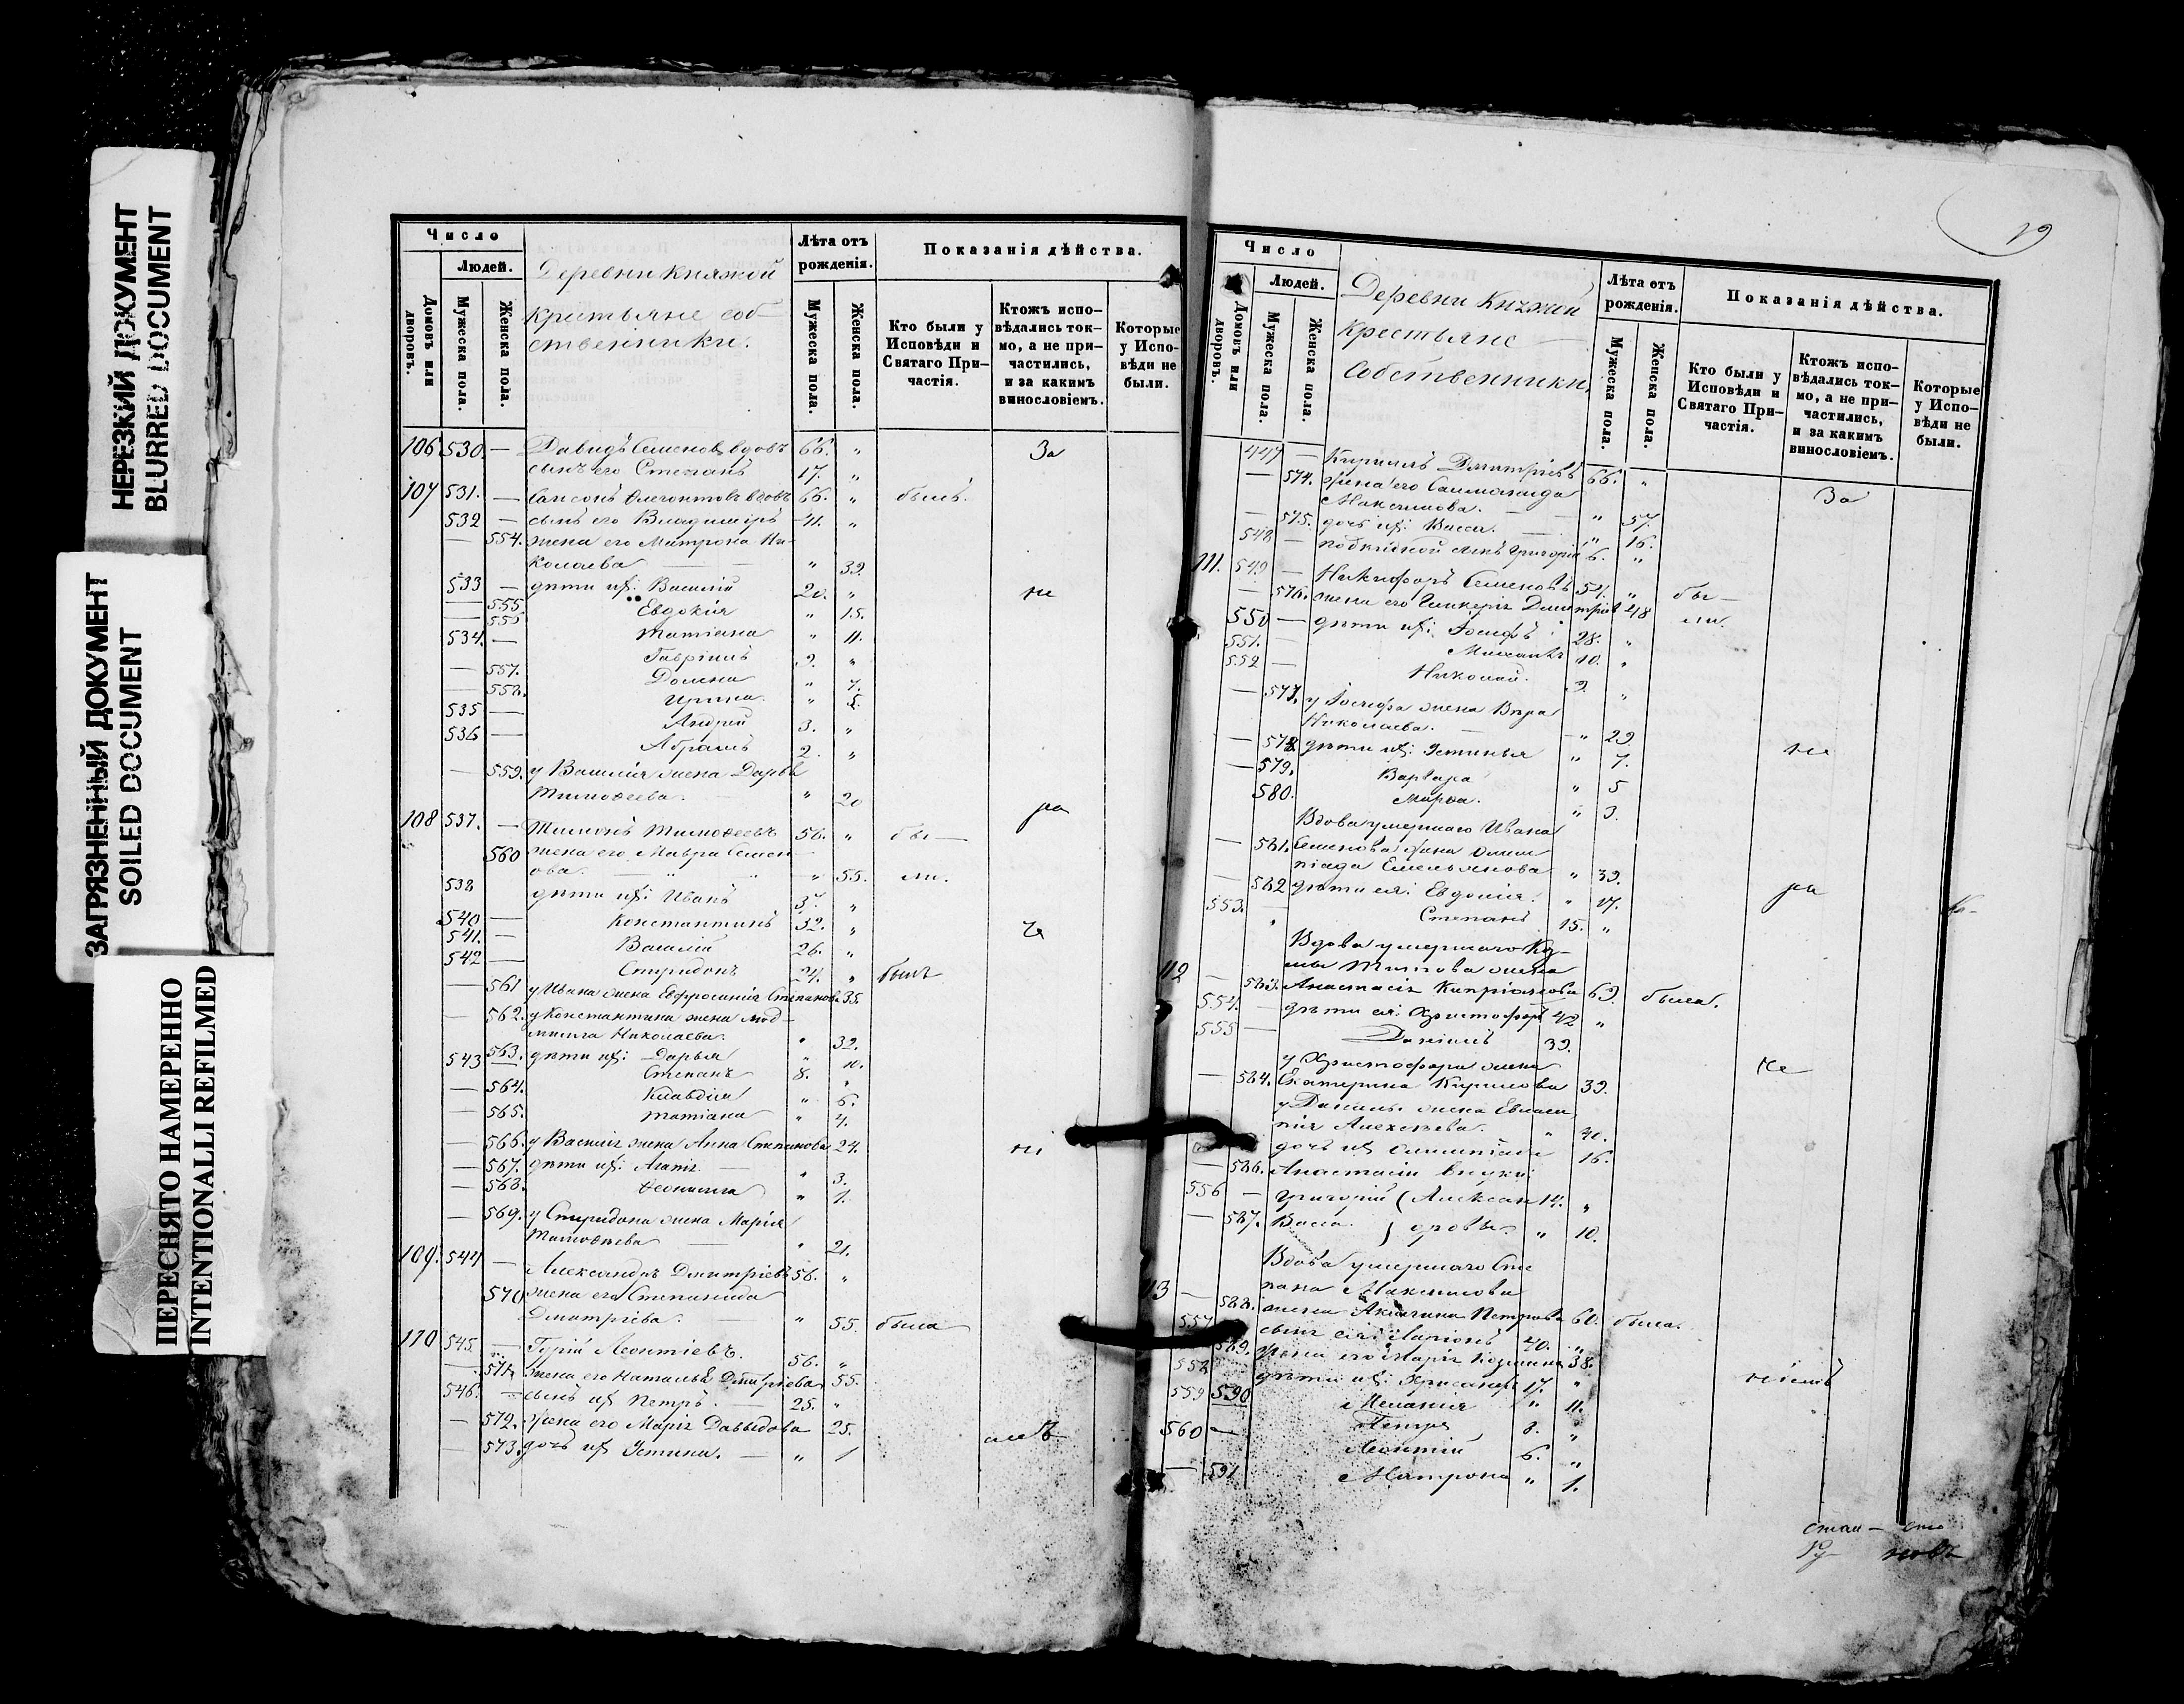 НЕРЕЗКИЙ ДОКУМЕНТ
BLURRED DOCUMENT
ЗАГРЯЗНЕННЫЙ ДОКУМЕНТ
SOILED DOCUMENT
ПЕРЕСНЯТО НАМЕРЕННО
INTENTIONALLI REFILMED
Число
Людей.
Домовъ или дворовъ.
Мужеска пола.
Женска пола.
Деревни Княжой
крестьяне соб-
ственники.
Лѣта отъ рожденія.
Мужеска пола.
Женска пола.
Показанія дѣйства.
Кто были у Исповѣди и Святаго При-частія.
Ктожъ испо-вѣдались ток-мо, а не при-частились, и за какимъ винословіемъ.
Которые у Испо-вѣди не были.
106 530. — Давидъ Семеновъ вдовъ 66. " За
сынъ его Степанъ 17. "
107 531. — Самсонъ вдовъ 66. " былъ.
532 — сынъ его Владимиръ 41. "
— 554. жена его Матрона Ни-
колаева — " 39.
533 — дѣти ихъ: Василій 20. " не
— 555. Евдокія " 15.
— Татіана " 11.
534. — Гавріилъ 9. "
— 557. Домна " 7.
— 558. Ирина. " 5.
535 — Андрей 3. "
536 — Абрамъ 2. "
— 559. у Василія жена Дарья
Тимофеева. — " 20
108 537. — Тимофеевъ 56. " бы — ра
560 жена его Мавра Семен-
ова. — " 55. ли.
538 дѣти ихъ: Иванъ 37. "
540 — Константинъ 32. " че
541. — Василій 26. "
542 — Спиридонъ 24. " былъ
— 561 у Ивана жена Евфросинія Степанова 35.
— 562. у Константина жена Люд-
мила Николаева. " 32.
563. дѣти ихъ: Дарья " 10.
543 — Степанъ 8. "
— 564. Клавдія " 6.
— 565. Татіана " 4.
— 566. у Василія жена Анна Степанова 24. ні
— 567. дѣти ихъ: Агапія — " 3.
— 568. Феонилла " 1.
— 569. у Спиридона жена Марія
Тимофеева — " 21.
109. 544 — Александръ Дмитріевъ 56. "
570 жена его Степанида
Дмитріева. — " 55. была
110 545. — Гурій Леонтіевъ. 56. "
— 571. жена его Наталья Дмитріева 55.
546. — сынъ ихъ Петръ. — 25. "
— 572. жена его Марія Давыдова 25.
— 573. дочь ихъ Устина. — " 1 емъ
19
Число
Людей.
Домовъ или дворовъ.
Мужеска пола.
Женска пола.
Деревни Княжой
Крестьяне —
Собственники.
Лѣта отъ рожденія.
Мужеска пола.
Женска пола.
Показанія дѣйства.
Кто были у Исповѣди и Святаго При-частія.
Ктожъ испо-вѣдались ток-мо, а не при-частились, и за какимъ винословіемъ.
Которые у Испо-вѣди не были.
447 — Кириллъ Дмитріевъ 66. " За
— 574. жена его Саломанида
Максимова. — " 57.
— 575. дочь ихъ: Васса. — " 16.
548 — подкидной сынъ Григорій 6. "
111. 549 — Никифоръ Семеновъ 54. " бы —
— 576. жена его Гликерія Дмитріев 48 ли.
550 — дѣти ихъ: Іосифъ 28. "
551. Михаилъ 10. "
552 — Николай. 9. "
— 577. у Іосифа жена Вѣра
Николаева. — " 29.
— 578. дѣти ихъ: Устинья " 7. не
— 579. Варвара " 5
580. Марфа. " 3.
Вдова умершаго Ивана
— 581. Семенова жена Олим-
піада Емельянова " 39.
— 582 дѣти ея: Евдокія. " 17. ра
553. — Степанъ 15. "
Вдова умершаго Козь-
мы Титова жена
112 — 583. Анастасія Кипріянова 63. была.
554. — дѣти ея: Христофоръ 42 "
555 — Даніилъ 39.
у Христофора жена че
— 584. Екатерина Кирилова 39.
у Даніила жена Евлам-
пія Алексѣева. " 40.
дочь ихъ Олимпіада 16.
— 586. Анастасіи внуки:
556 — Григорій (Алексан 14. "
— 587. Васса. ) дровы. " 10.
Вдова умершаго Сте
пана Максимова
113 — 588. жена Акилина Петрова 60. была.
557 сынъ ея: Ларіонъ 40. "
589. жена его Марія Козьмина 38.
558 дѣти ихъ: Хрисанфъ 17. " ніемъ
559 590 Меланія " 11.
560 — Петръ 8. "
Леонтій 6. "
— 591 Матрона " 1.